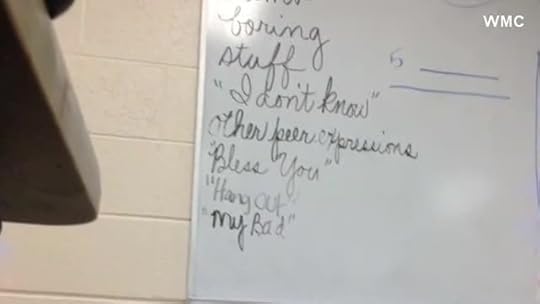 WMC
boring
stuff
5
"I don't know"
other peer expressions
"Bless You"
"Hang out"
"My Bad"